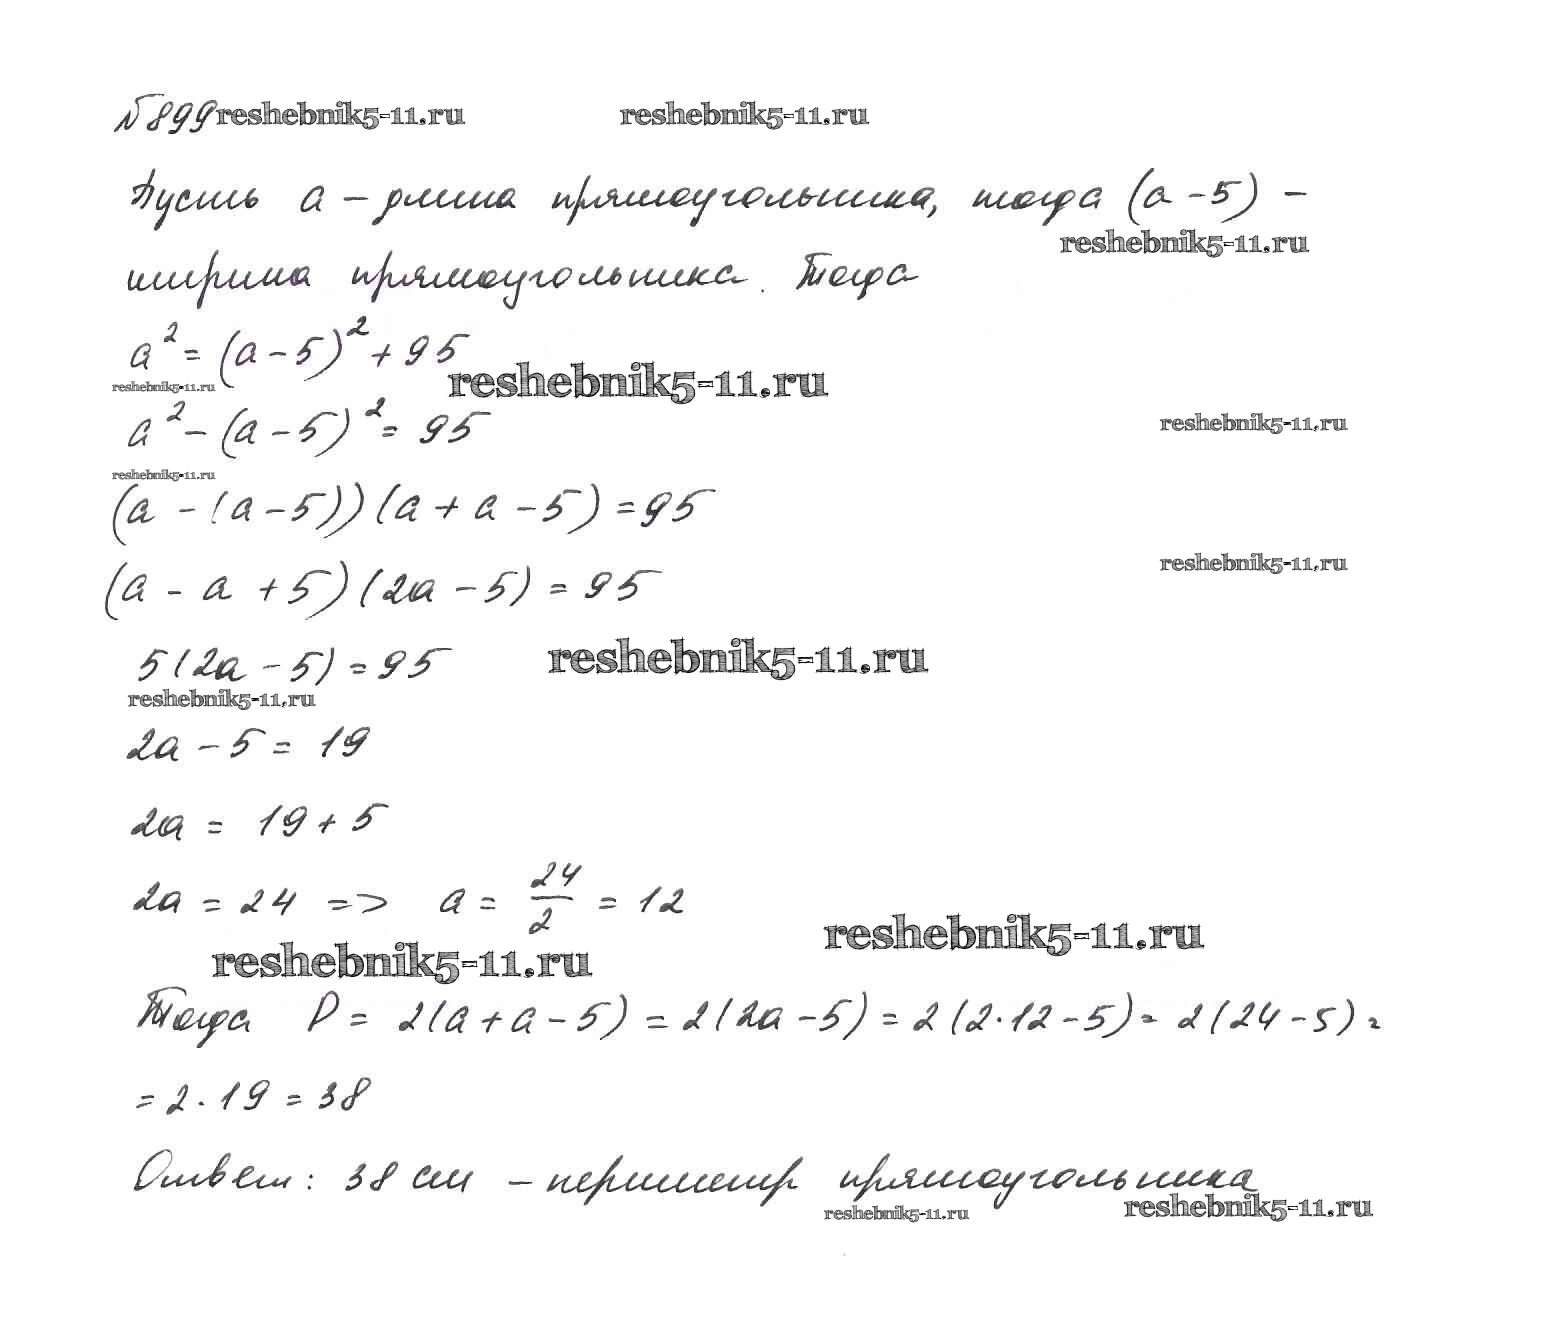 №899 reshebnik5-11.ru reshebnik5-11.ru
Пусть a – длина прямоугольника, тогда (a – 5) –
reshebnik5-11.ru
ширина прямоугольника. Тогда
a² = (a – 5)² + 95
reshebnik5-11.ru reshebnik5-11.ru
a² – (a – 5)² = 95
reshebnik5-11.ru
reshebnik5-11.ru
(a – (a – 5))(a + a – 5) = 95
reshebnik5-11.ru
(a – a + 5)(2a – 5) = 95
5(2a – 5) = 95
reshebnik5-11.ru
reshebnik5-11.ru
2a – 5 = 19
2a = 19 + 5
2a = 24 => a = 24/2 = 12
reshebnik5-11.ru reshebnik5-11.ru
Тогда P = 2(a + a – 5) = 2(2a – 5) = 2(2·12 – 5) = 2(24 – 5) =
= 2 · 19 = 38
Ответ: 38 см – периметр прямоугольника
reshebnik5-11.ru reshebnik5-11.ru